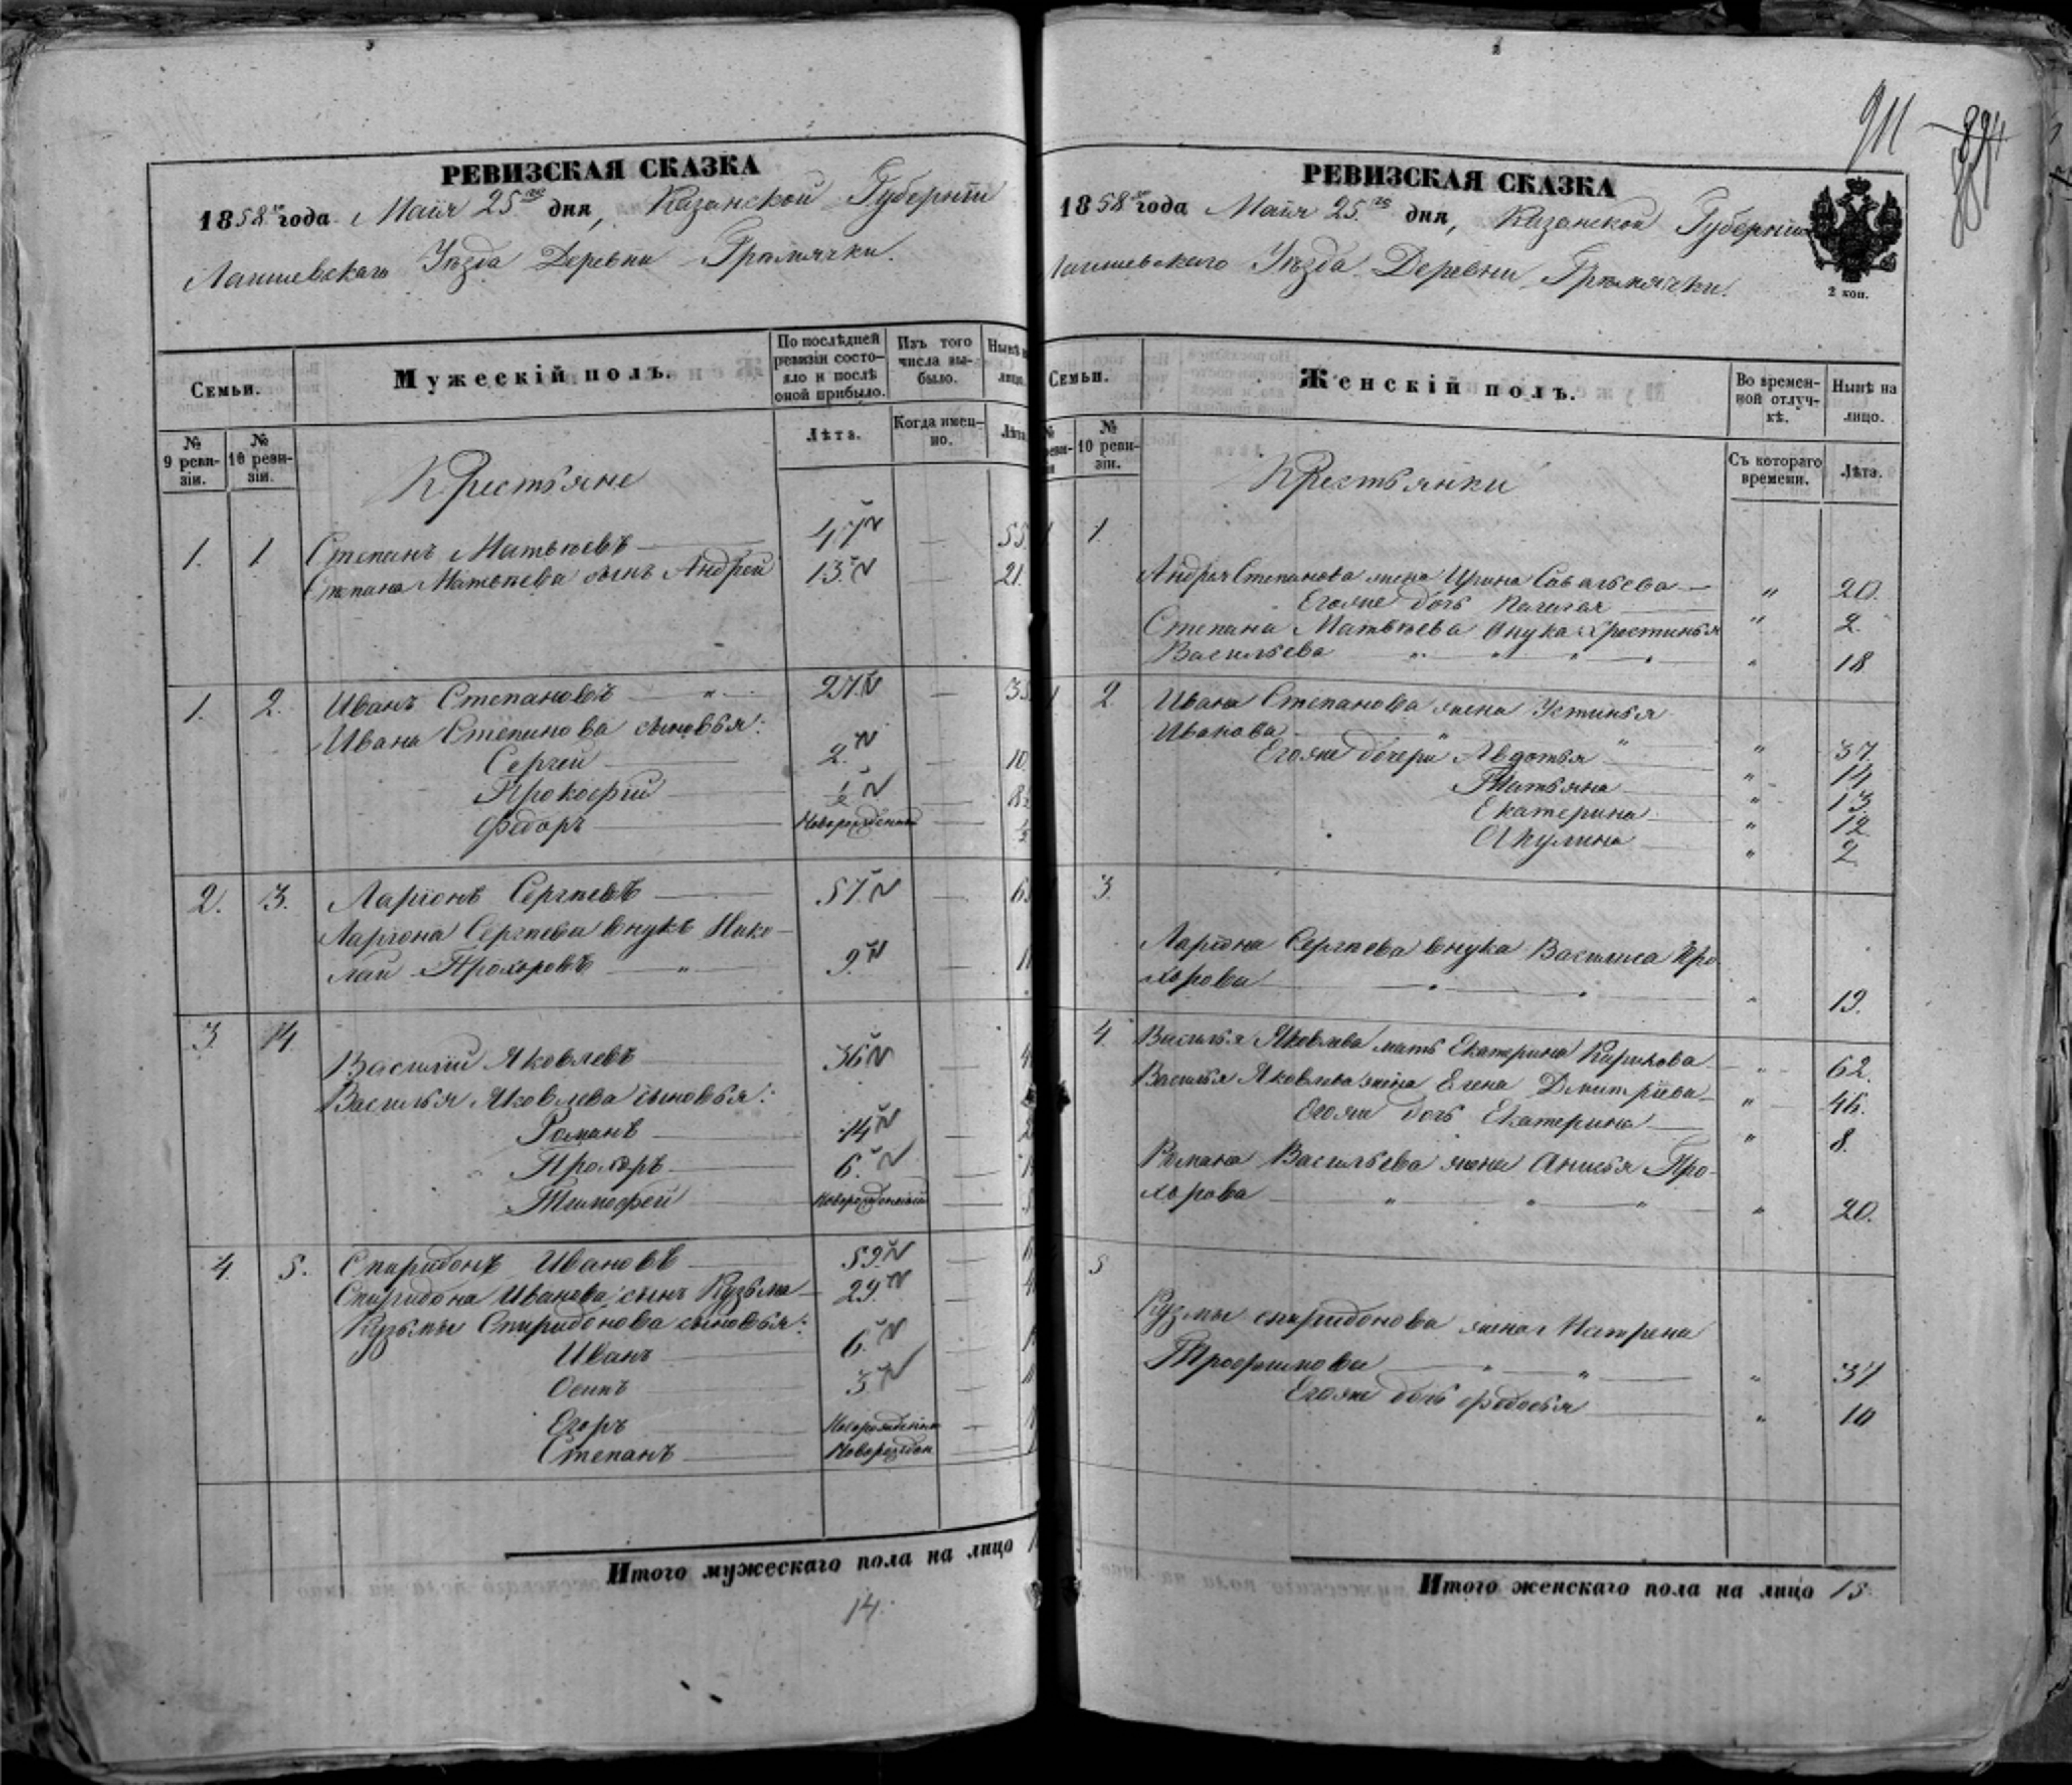 911
РЕВИЗСКАЯ СКАЗКА
1858 го года Мая 25 го дня, Казанской Губерніи
Лаишевскаго Уѣзда Деревни Гремячки.
Семьи.
Мужескій полъ.
По послѣдней ревизіи состояло и послѣ оной прибыло.
Изъ того числа выбыло.
Нынѣ
лицо
№ 9 ревизіи.
№ 10 ревизіи.
Лѣта.
Когда именно.
Лѣта
Крестьяне
1. 1 Степанъ Матвѣевъ 47 — 55
Степана Матвѣева сынъ Андрей 13. 21.
1. 2. Иванъ Степановъ 27. — 35
Ивана Степанова сыновья:
Сергей 2. — 10.
Прокофій ½ — 8½
Федоръ Новорожденный — ½
2. 3. Ларіонъ Сергѣевъ 57. —
Ларіона Сергѣева внукъ Нико-
лай Прохоровъ 9. —
3. 4. Василій Яковлевъ 36
Василья Яковлева сыновья:
Романъ 14 —
Прохоръ 6. —
Тимофей Новорожденный —
4. 5. Спиридонъ Ивановъ 59. —
Спиридона Иванова сынъ Кузьма 29. —
Кузьмы Спиридонова сыновья:
Иванъ 6. —
Осипъ 3. —
Егоръ Новорожденный —
Степанъ Новорожден —
Итого мужескаго пола на лицо
14.
РЕВИЗСКАЯ СКАЗКА
1858 го года Мая 25. го дня, Казанской Губерніи
Лаишевскаго Уѣзда Деревни Гремячки.
2 коп.
Семьи.
Женскій полъ.
Во временной отлучкѣ.
Нынѣ на лицо.
№ 10 ревизіи.
Съ котораго времени.
Лѣта.
Крестьянки
1
Андрея Степанова жена Ирина Савельева — " 20.
Егоже дочь Пелагея " 2.
Степана Матвѣева внука Хрестинья
Васильева " 18
2 Ивана Степанова жена Устинья
Иванова " 37.
Егоже дочери Авдотья " 14
Татьяна " 13
Екатерина " 12
Акулина " 2
3.
Ларіона Сергѣева внука Василиса Про-
хорова " 19.
4. Василья Яковлева мать Екатерина " 62.
Василья Яковлева жена Елена Дмитріева " 46.
Егоже дочь Екатерина " 8.
Романа Васильева жена Анисья Про-
хорова " 20.
5
Кузмы Спиридонова жена Матрена
Трофимова " 37
Егоже дочь Федосья " 10
Итого женскаго пола на лицо 15